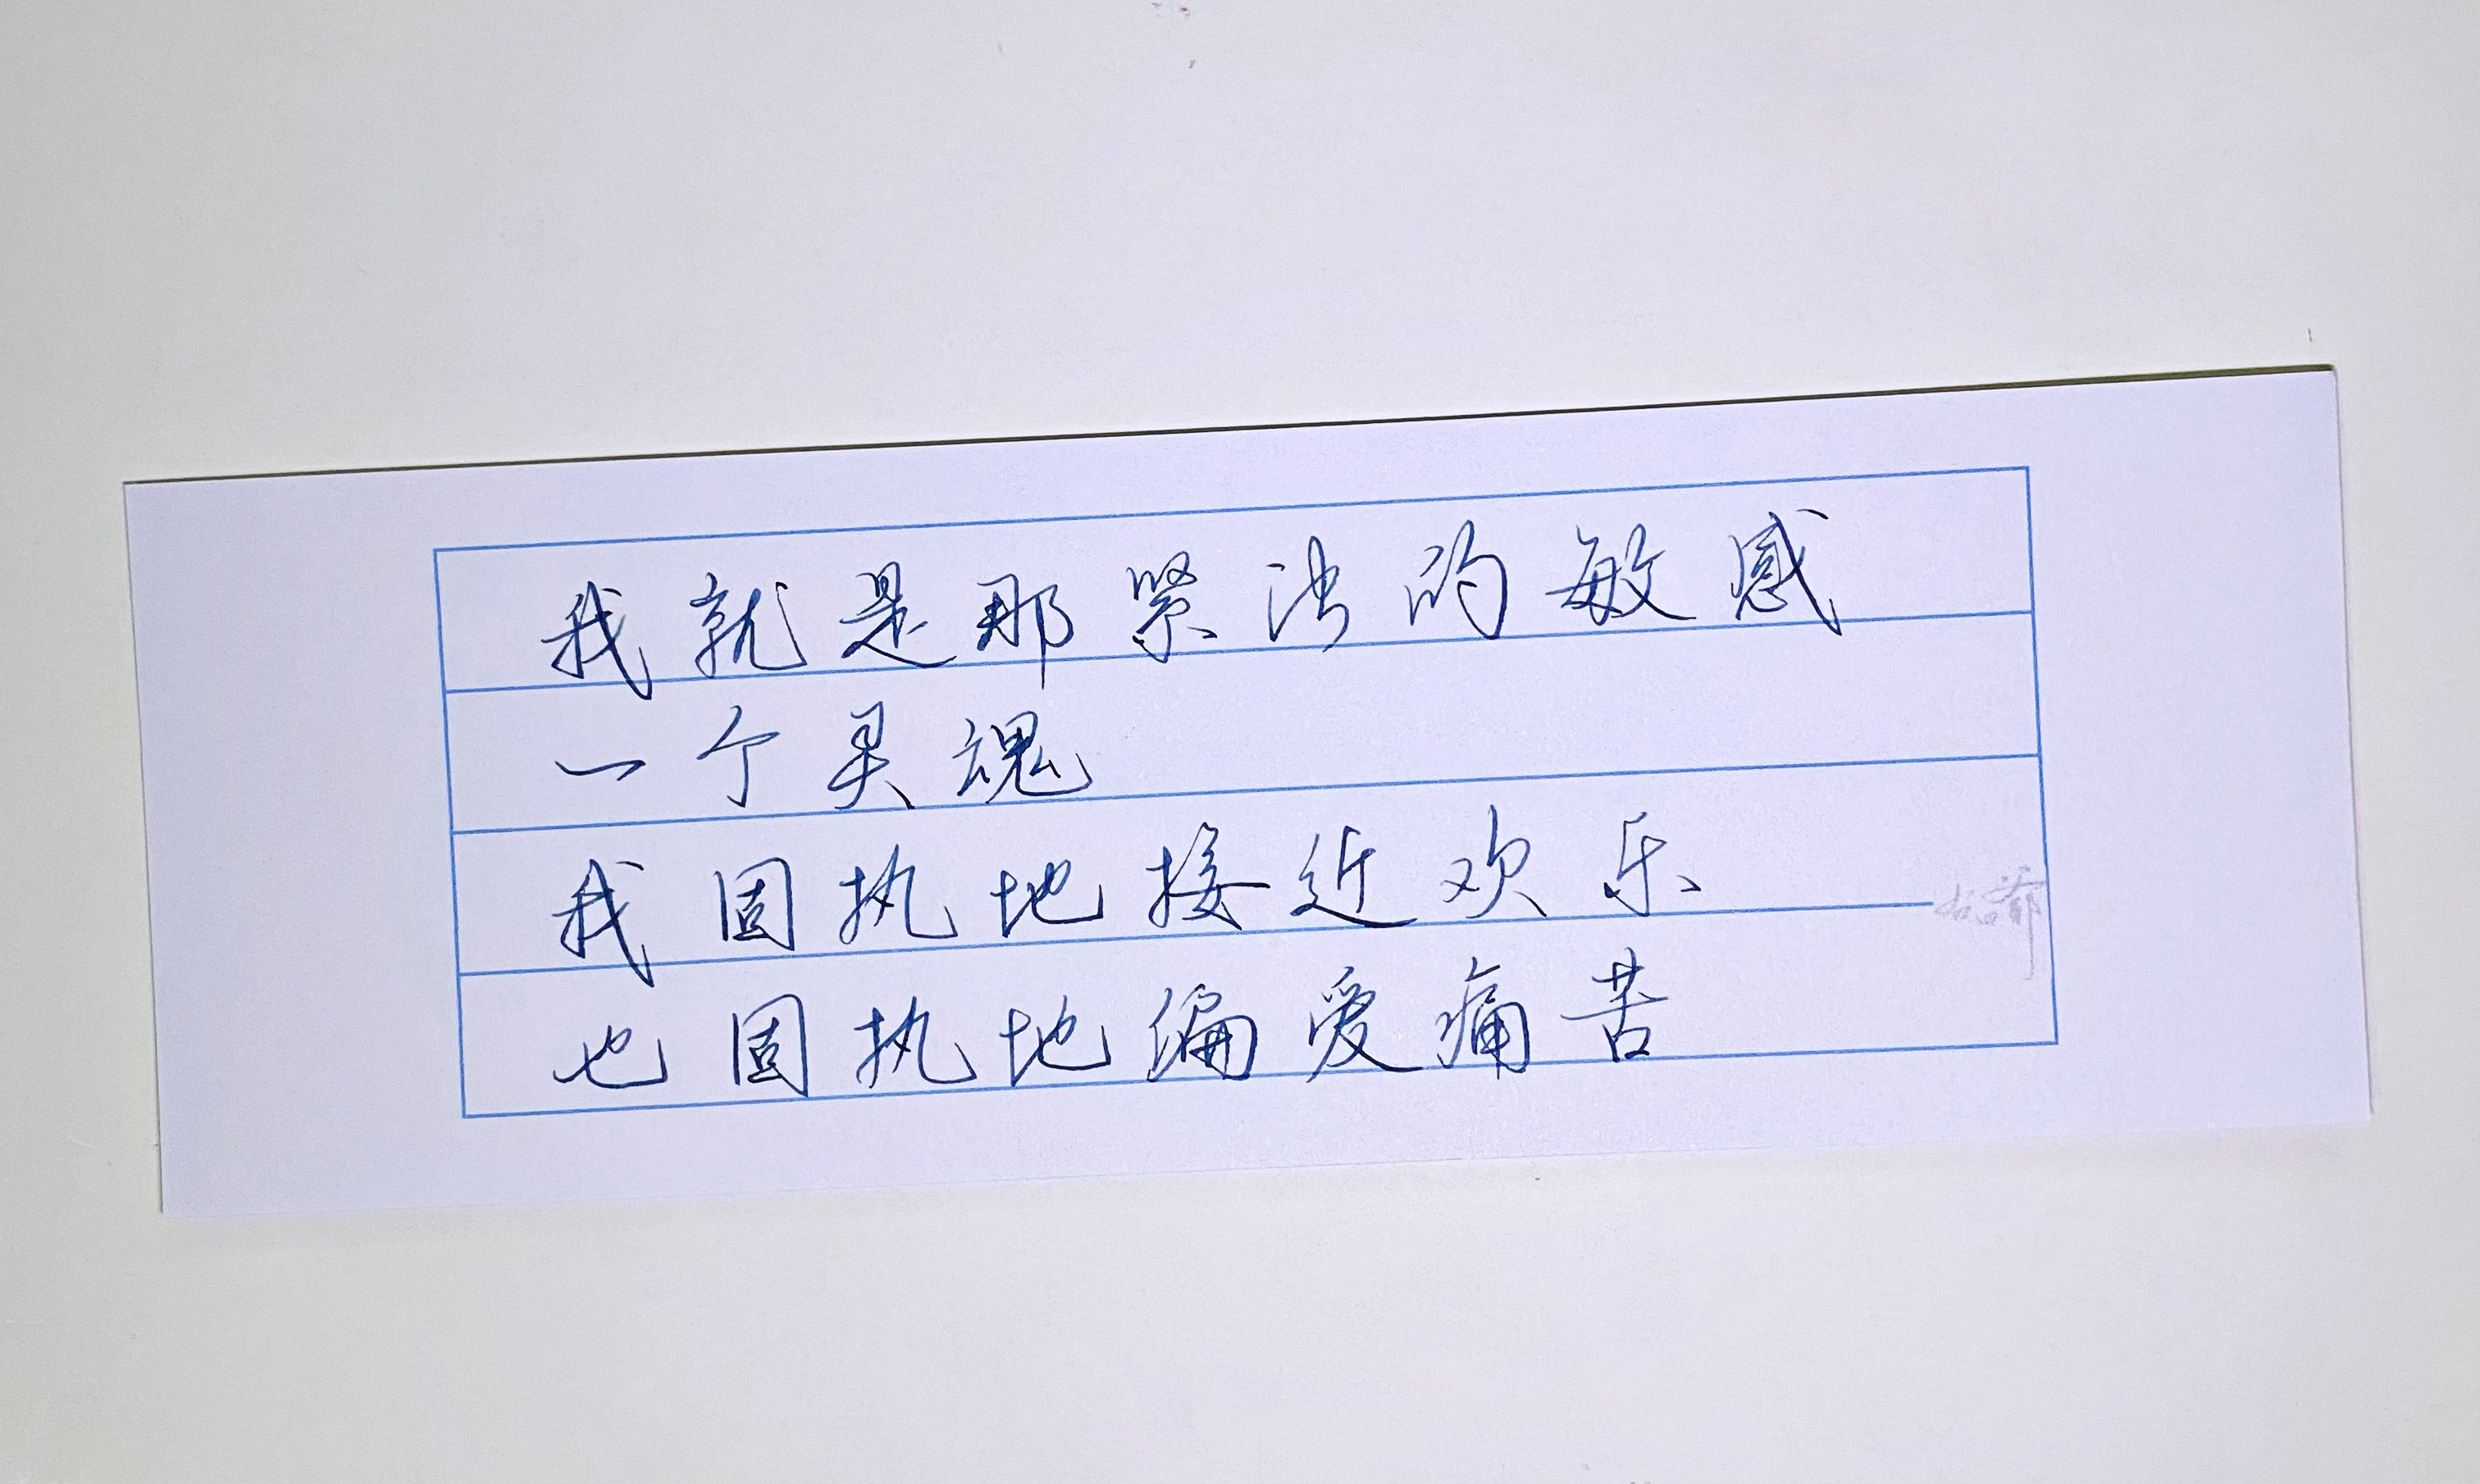 我就是那紧张的敏感
一个灵魂
我固执地接近欢乐
也固执地偏爱痛苦